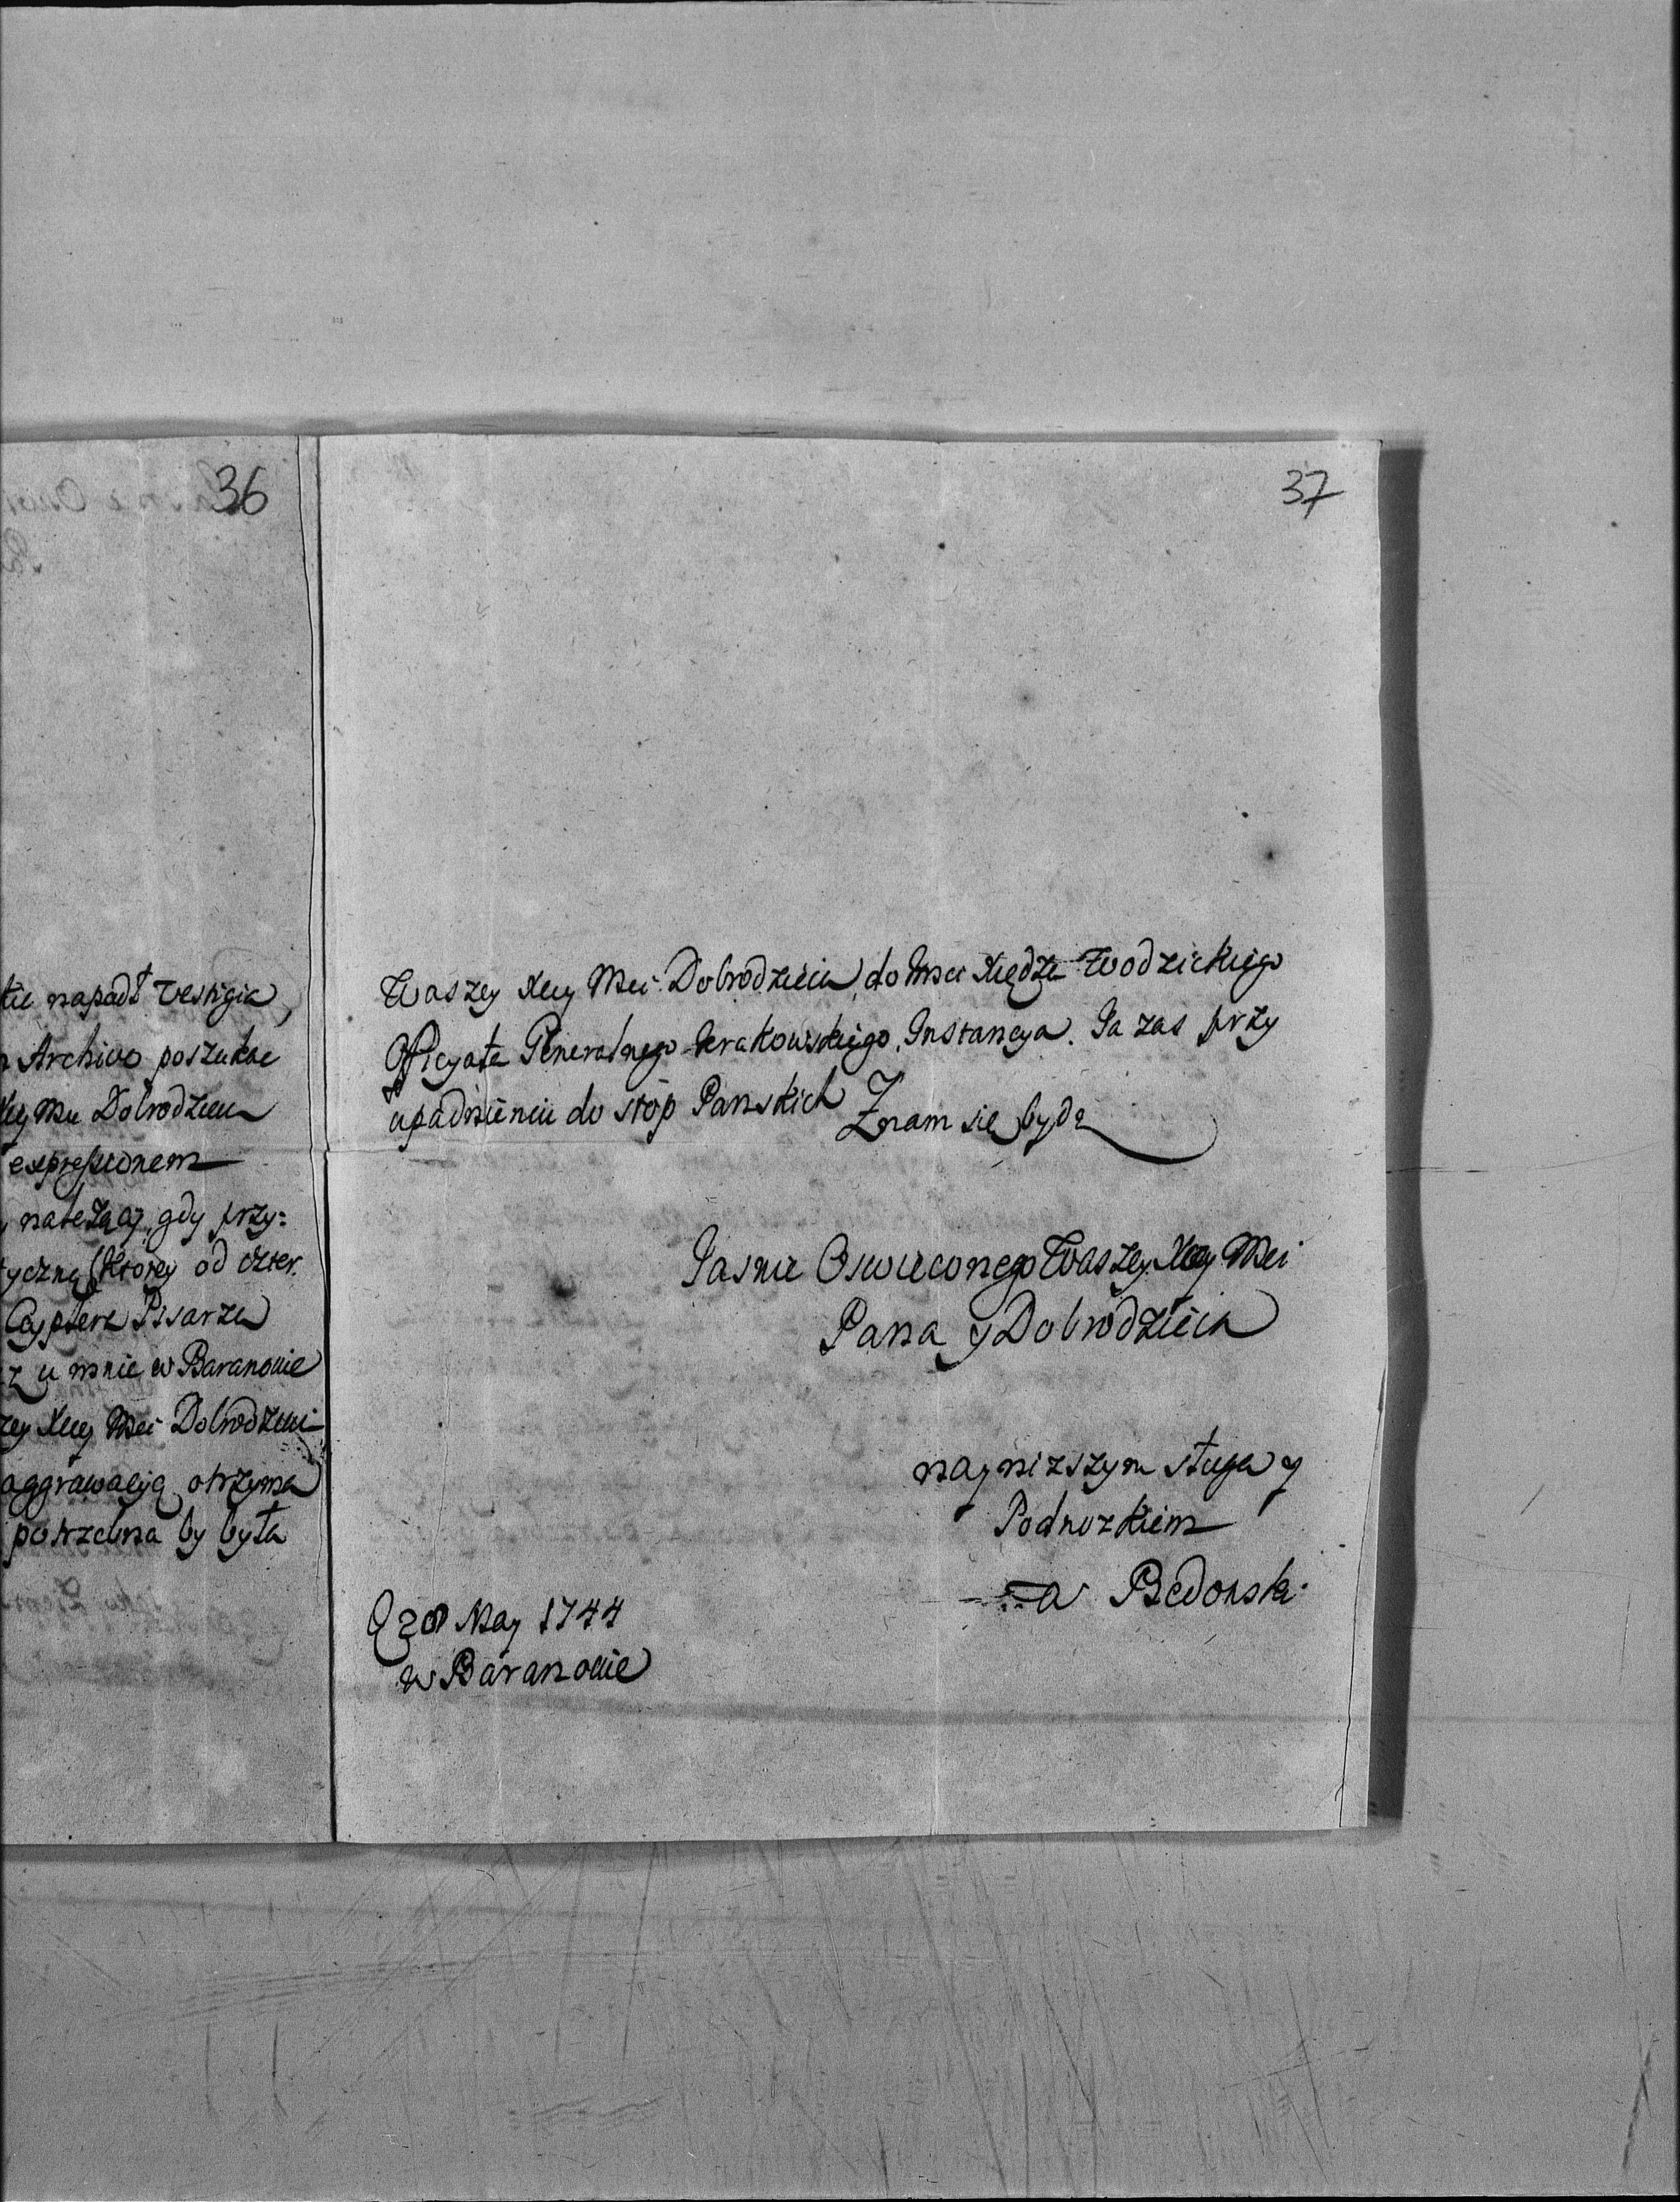 36
tie napadł Vestigia,
Archivo poszukac
Xcy Mu Dobrodzieu
expressionem
należący, gdy przy:
yczną (ktorey od czter.
Pisarza
z u mnie w Baranowie
zey Xcey Mci Dobrodzieiu
aggrawacyą otrzyma
potrzebna by była
37
Waszey Xcey Mci Dobrodzieia, do Imci Xiędza Wodzickiego
Officyała Generalnego Krakowskiego, Instancya. Ja zas przy
upadnieniu do stop Panskich Znam się bydz
Jasnie Oswieconego Waszey Xcey Mci
Pana y Dobrodzieia
naynizszym sługą y
Podnozkiem
Bedonski
20 May 1744
w Baranowie